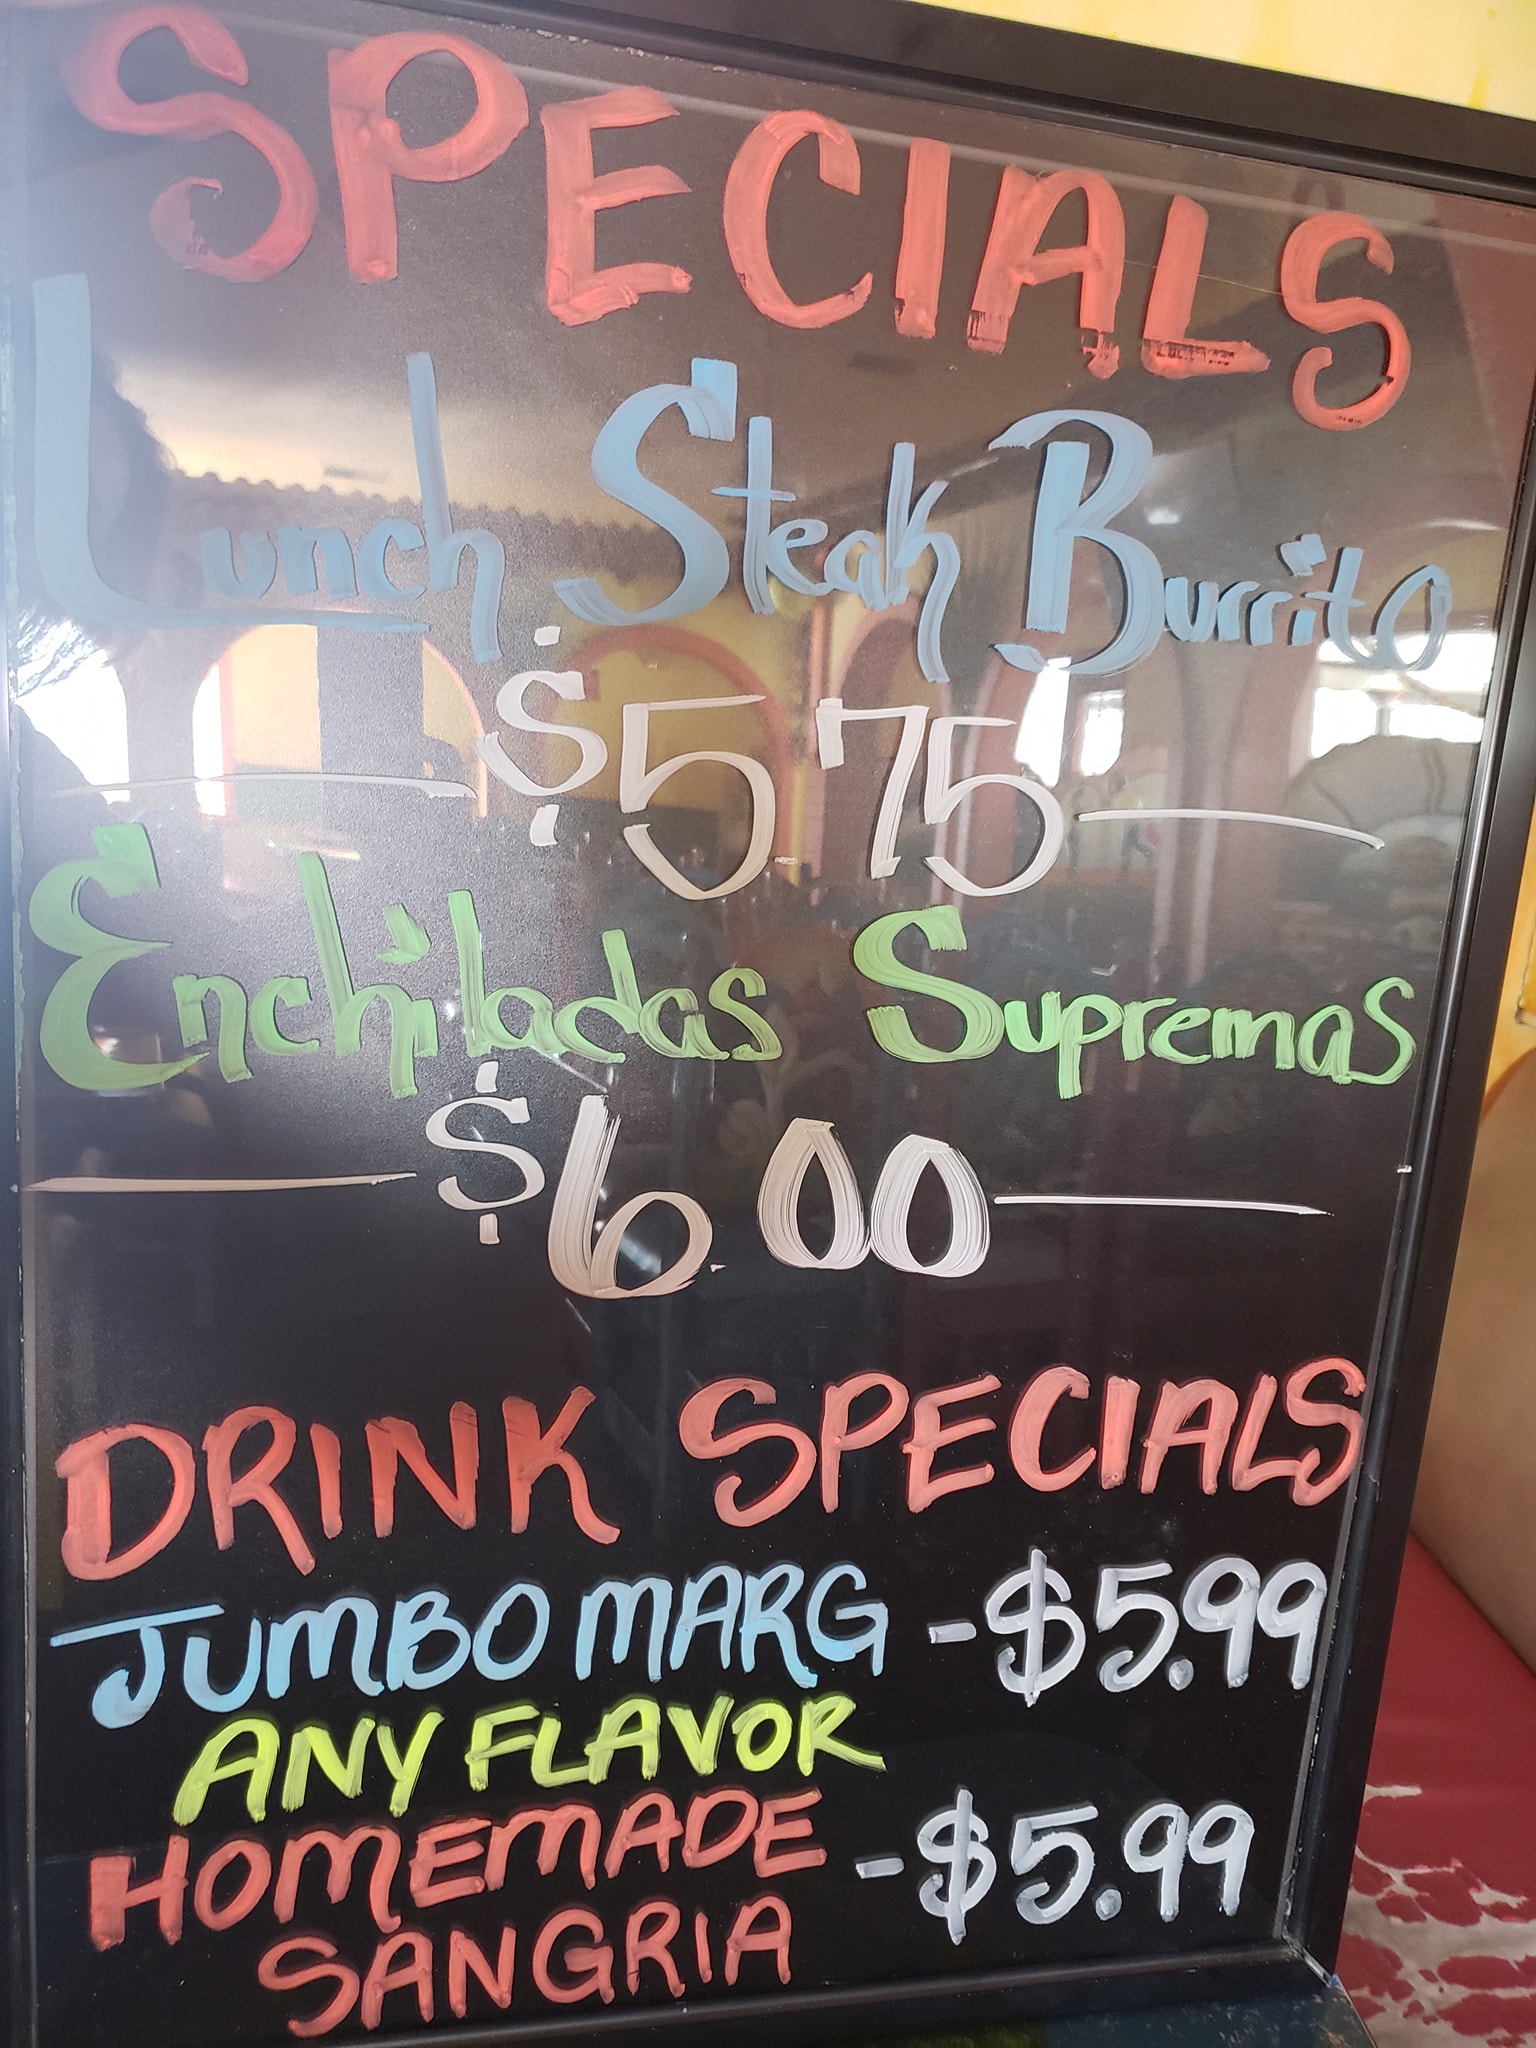 SPECIALS
Lunch Steak Burrito
$5.75
Enchiladas Supremas
$6.00
DRINK SPECIALS
JUMBO MARG -$5.99
ANY FLAVOR
HOMEMADE -$5.99
SANGRIA